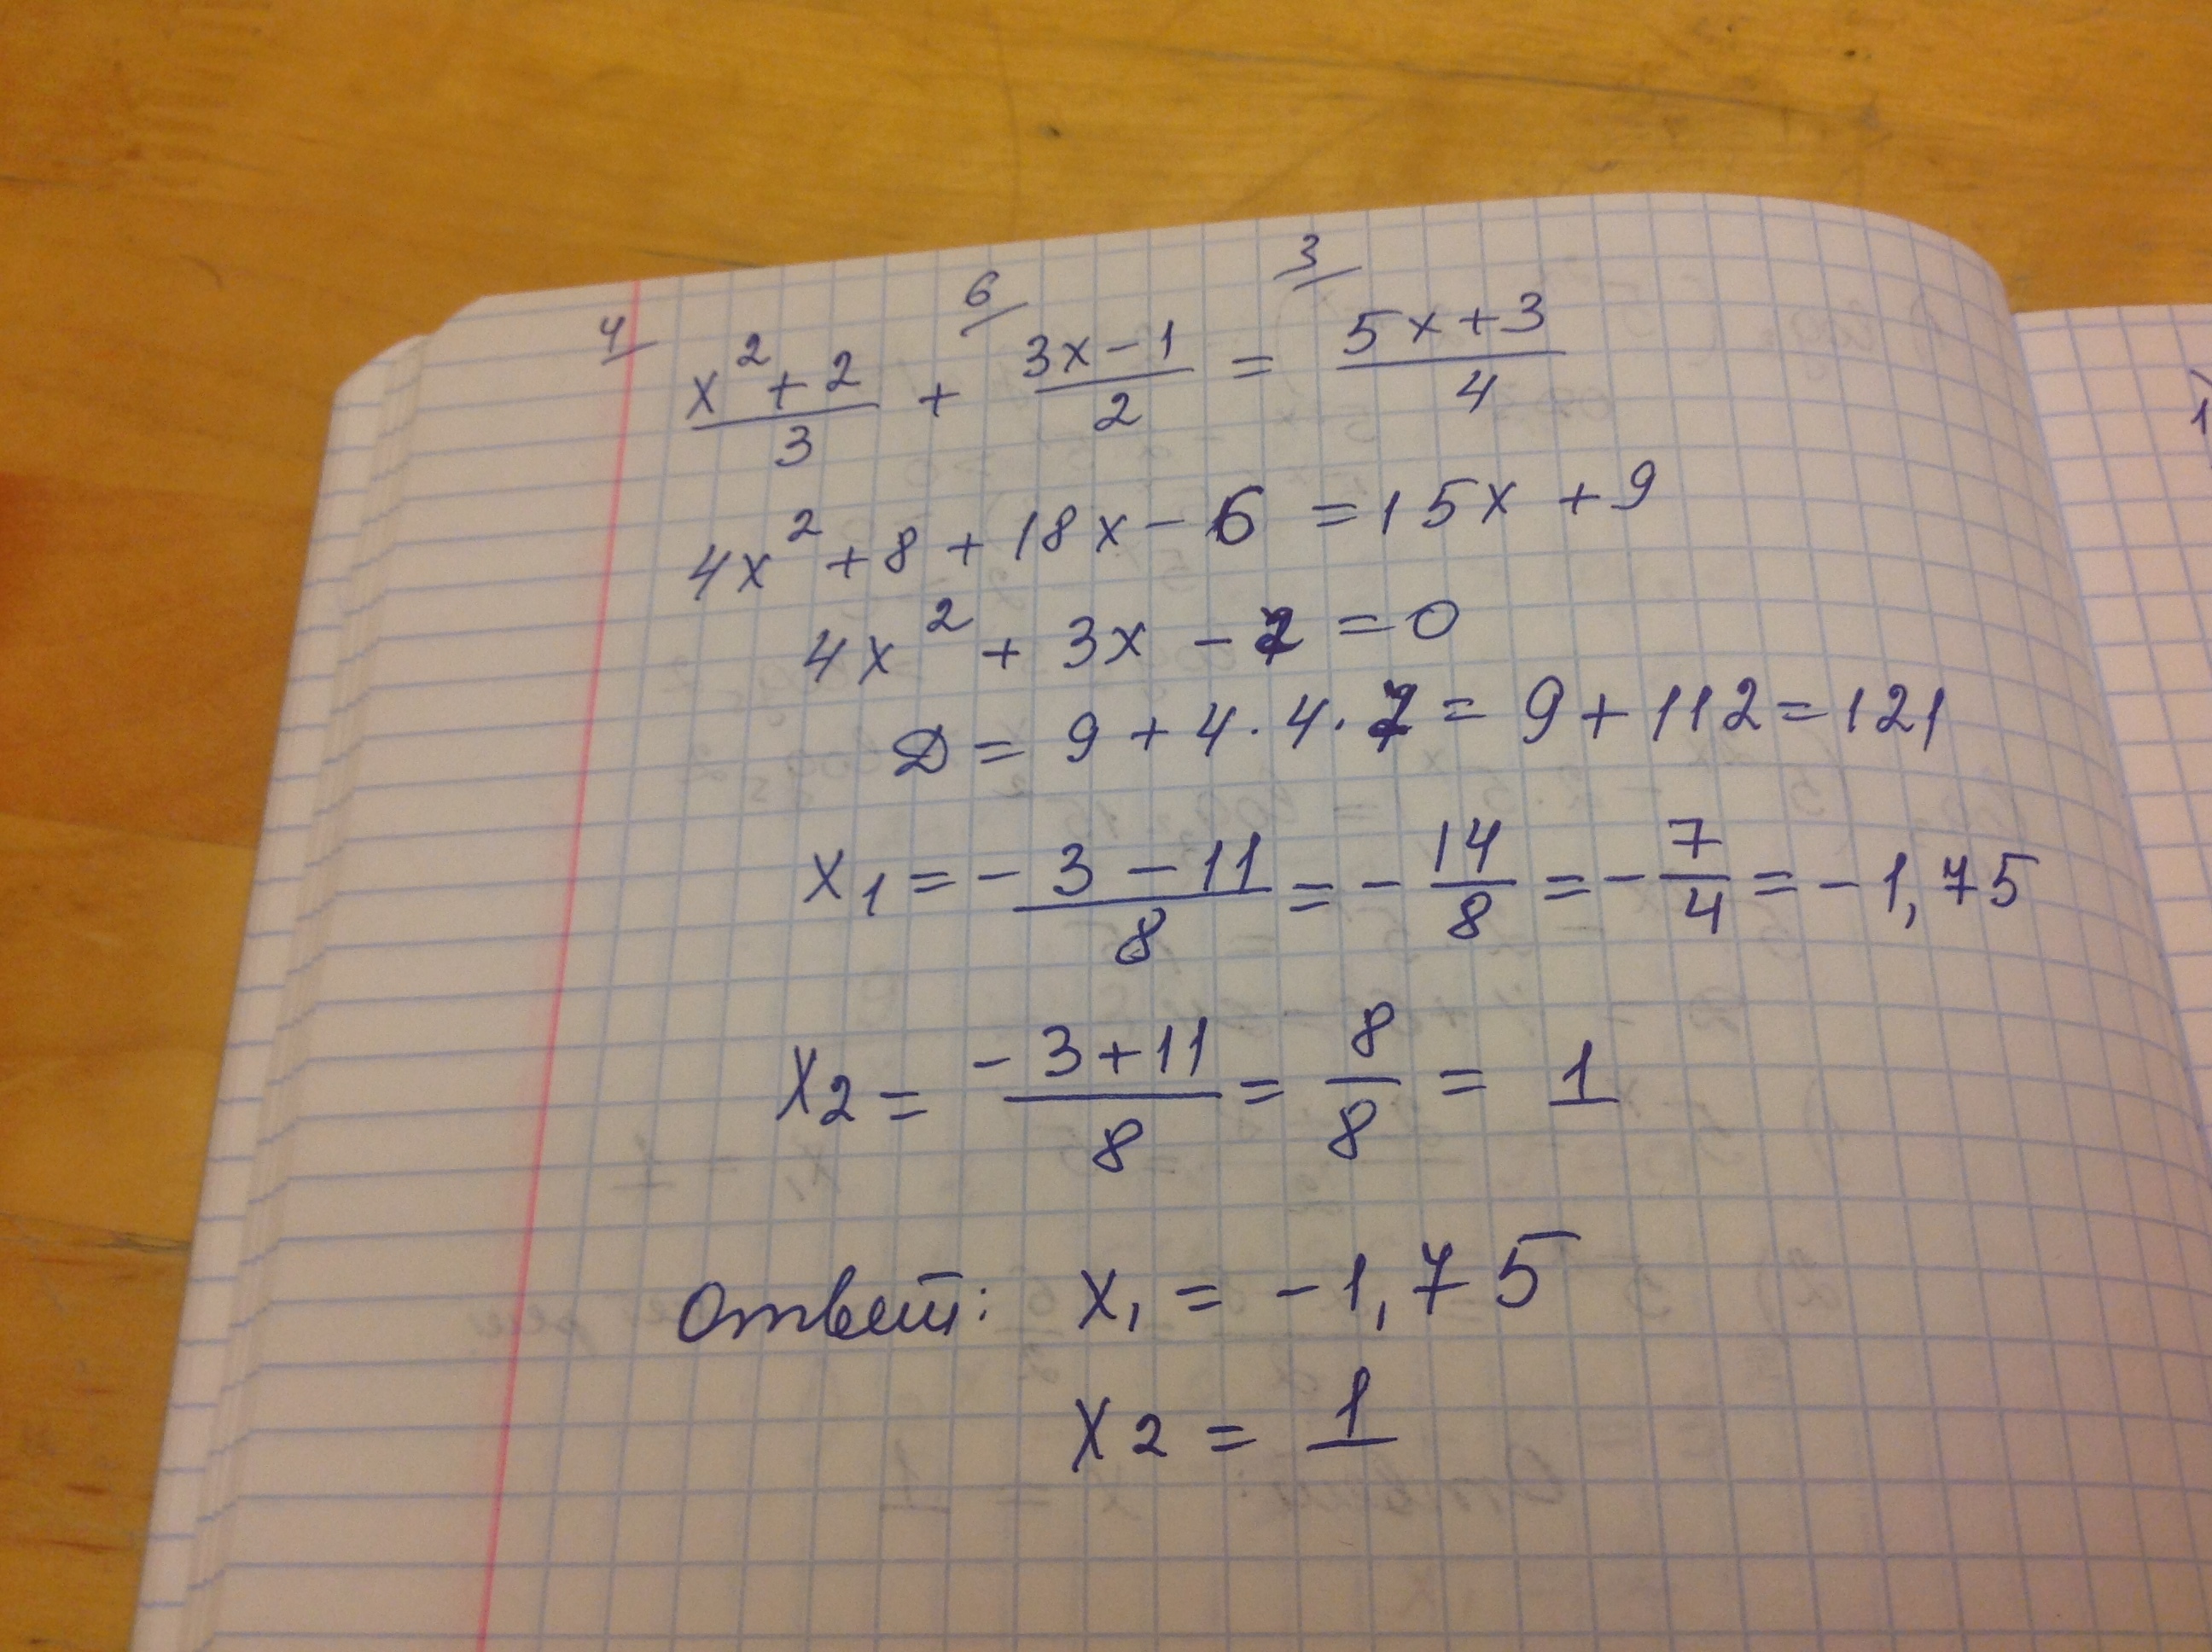 4/ (x² + 2)/3 + 6/ (3x - 1)/2 = 3/ (5x + 3)/4
4x² + 8 + 18x - 6 = 15x + 9
4x² + 3x - 7 = 0
D = 9 + 4 · 4 · 7 = 9 + 112 = 121
x₁ = (-3 - 11)/8 = -14/8 = -7/4 = -1,75
x₂ = (-3 + 11)/8 = 8/8 = 1
Ответ: x₁ = -1,75
x₂ = 1